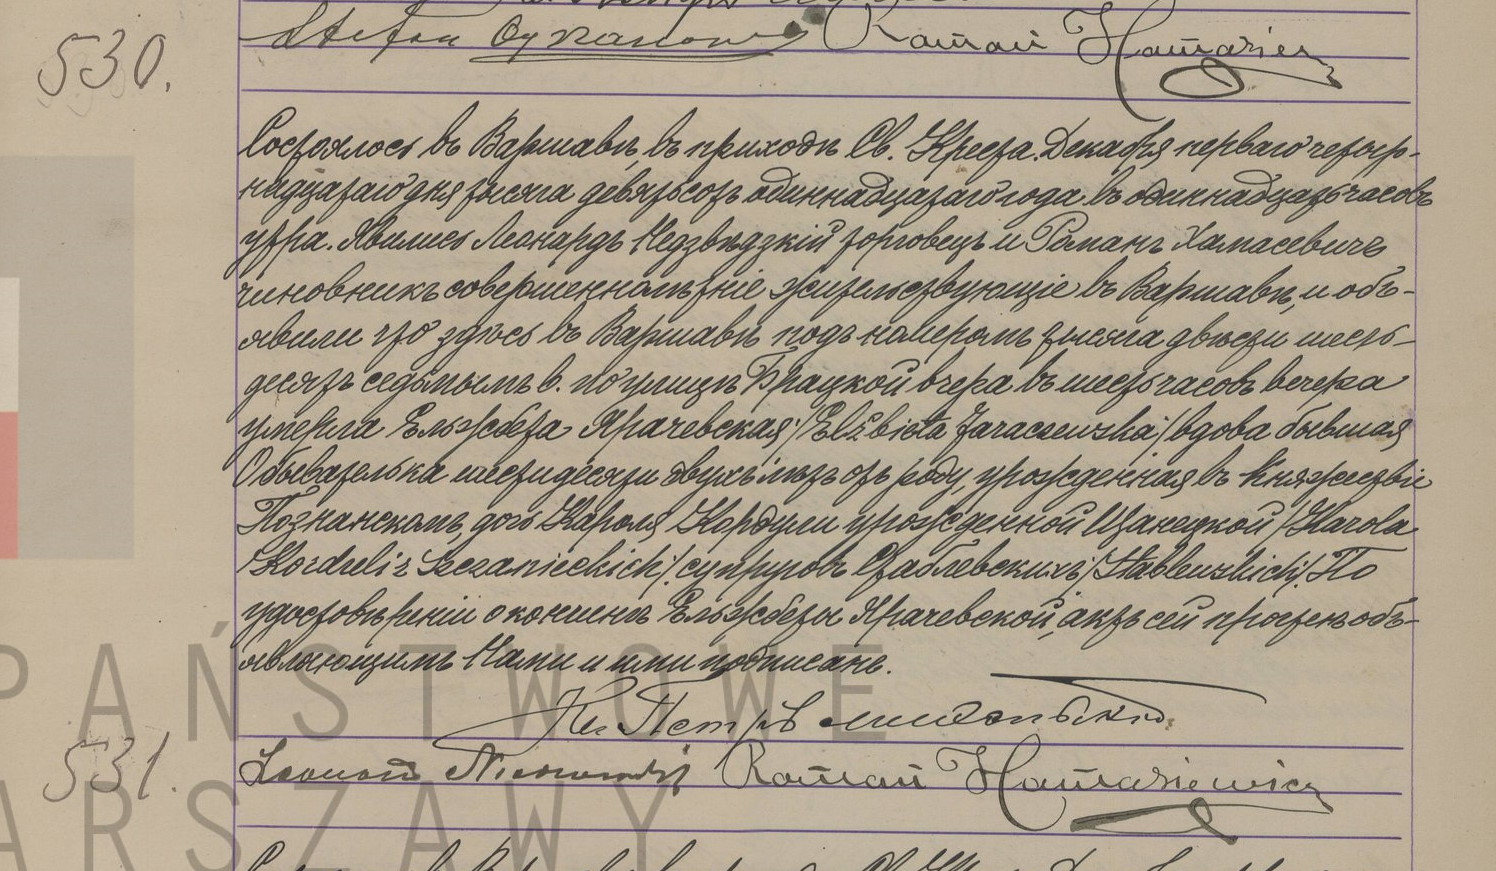 530.
Stefan Roman Hamasiew
Состоялось въ Варшавѣ, въ приходѣ Св. Креста. Декабря перваго четыр-
надцатаго дня тысяча девятьсотъ одиннадцатаго года въ одиннадцать часовъ
утра. Явились Леонардъ Недзвѣдзкій торговецъ и Романъ Хамасевичъ
чиновникъ совершеннолѣтніе жительствующіе въ Варшавѣ, и объ-
явили что здѣсь въ Варшавѣ подъ номеромъ тысяча двѣсти шесть-
десятъ седьмымъ в. по улицѣ Брацкой вчера въ шесть часовъ вечера
умерла Ельжбета Ярачевская /Elżbieta Jaraczewska/ вдова бывшая
Обывателька шестидесяти двухъ лѣтъ отъ роду, урожденная въ Княжествѣ
Познанскомъ, дочь Кароля Кордули урожденной Щанецкой /Karola
Korduli z Szczanieckich/ супруговъ Стаблевскихъ /Stablewskich/. По
удостовѣреніи о кончинѣ Ельжбеты Ярачевской, актъ сей прочтенъ объ-
являющимъ Нами и ими подписанъ.
Кс. Петръ
531.
Leonard Roman Hamasiewicz
PAŃSTWOWE
ARSZAWY